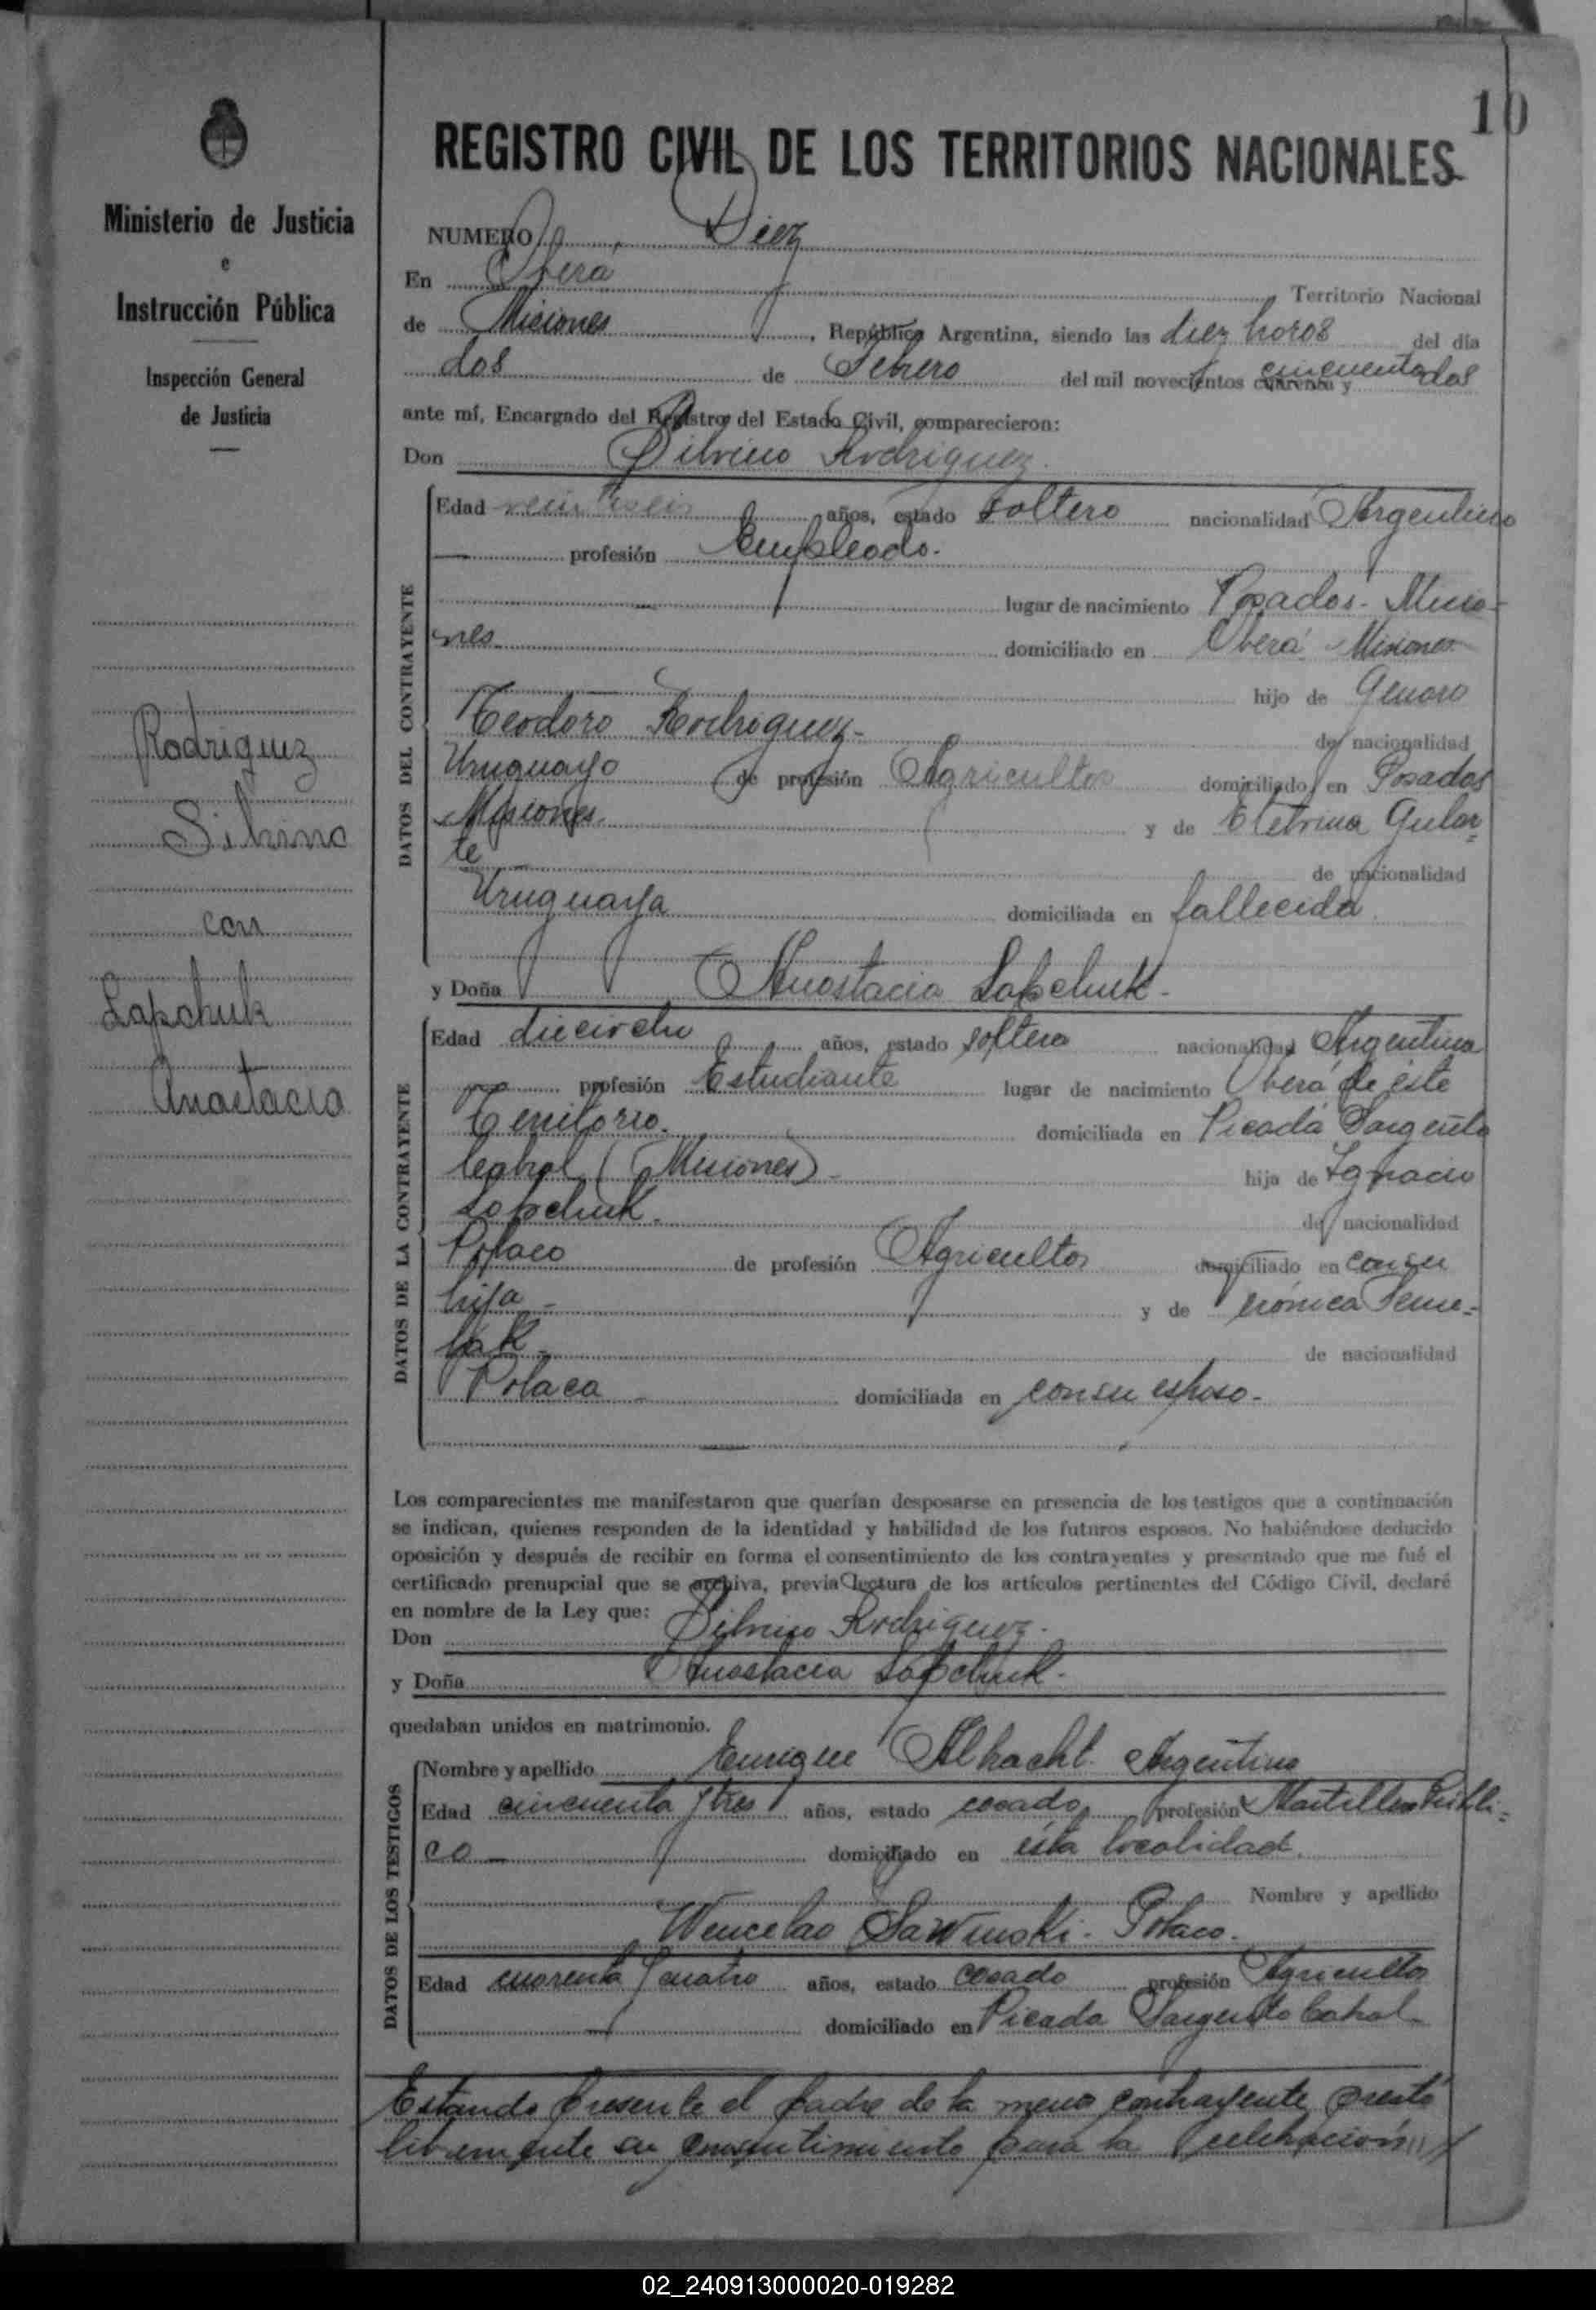 10
REGISTRO CIVIL DE LOS TERRITORIOS NACIONALES
Ministerio de Justicia
e
Instrucción Pública
Inspección General
de Justicia
Rodriguez
Silvino
con
Lapchuk
Anastacia
NUMERO Diez
En Oberá Territorio Nacional
de Misiones, República Argentina, siendo las diez horas del día
dos de Febrero del mil novecientos cuarenta y cincuenta dos
ante mí, Encargado del Registro del Estado Civil, comparecieron:
Don Silvino Rodriguez.
DATOS DEL CONTRAYENTE
Edad veintiseis años, estado soltero nacionalidad Argentino
— profesión Empleado.
lugar de nacimiento Posadas - Misio-
nes domiciliado en Oberá Misiones
hijo de Genaro
Teodoro Rodriguez - de nacionalidad
Uruguayo de profesión Agricultor domiciliado en Posadas
Misiones. y de Etelvina Gular=
te de nacionalidad
Uruguaya domiciliada en fallecida
y Doña Anastacia Lapchuk -
DATOS DE LA CONTRAYENTE
Edad dieciocho años, estado soltera nacionalidad Argentina
profesión Estudiante lugar de nacimiento Oberá de este
Territorio. domiciliada en Picada Sargento
Cabral (Misiones) - hija de Ignacio
Lapchuk. de nacionalidad
Polaco de profesión Agricultor domiciliado en con su
hija - y de Verónica
de nacionalidad
Polaca - domiciliada en con su esposo -
Los comparecientes me manifestaron que querían desposarse en presencia de los testigos que a continuación
se indican, quienes responden de la identidad y habilidad de los futuros esposos. No habiéndose deducido
oposición y después de recibir en forma el consentimiento de los contrayentes y presentado que me fué el
certificado prenupcial que se archiva, previa lectura de los artículos pertinentes del Código Civil, declaré
en nombre de la Ley que:
Don Silvino Rodriguez.
y Doña Anastacia Lapchuk.
quedaban unidos en matrimonio.
DATOS DE LOS TESTIGOS
Nombre y apellido Enrique Argentino
Edad cincuenta y tres años, estado casado profesión Martillero Públi=
co — domiciliado en ésta localidad.
Nombre y apellido
Wenceslao Sawinski - Polaco.
Edad cuarenta y cuatro años, estado casado profesión Agricultor
domiciliado en Picada Sargento Cabral
Estando presente el padre de la menor contrayente presta
libremente su consentimiento para la celebración
02_240913000020-019282